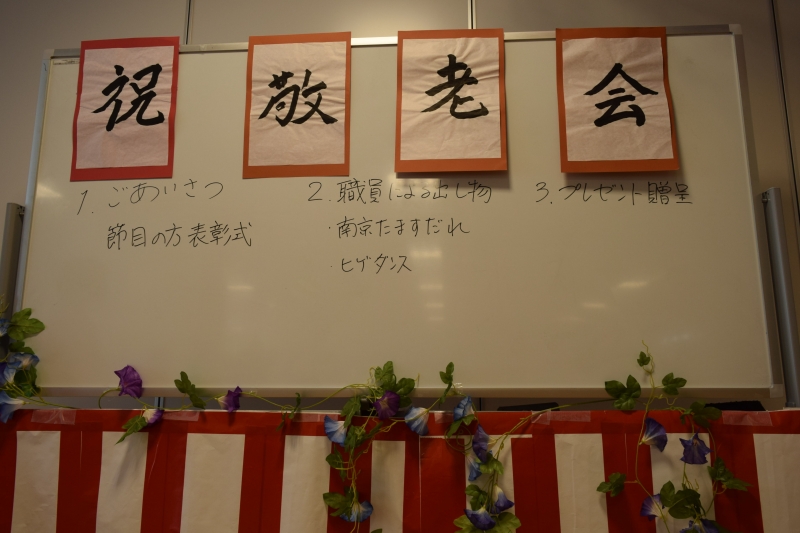 祝敬老会
1. ごあいさつ
節目の方表彰式
2. 職員による出し物
・南京たますだれ
・ヒゲダンス
3. プレゼント贈呈